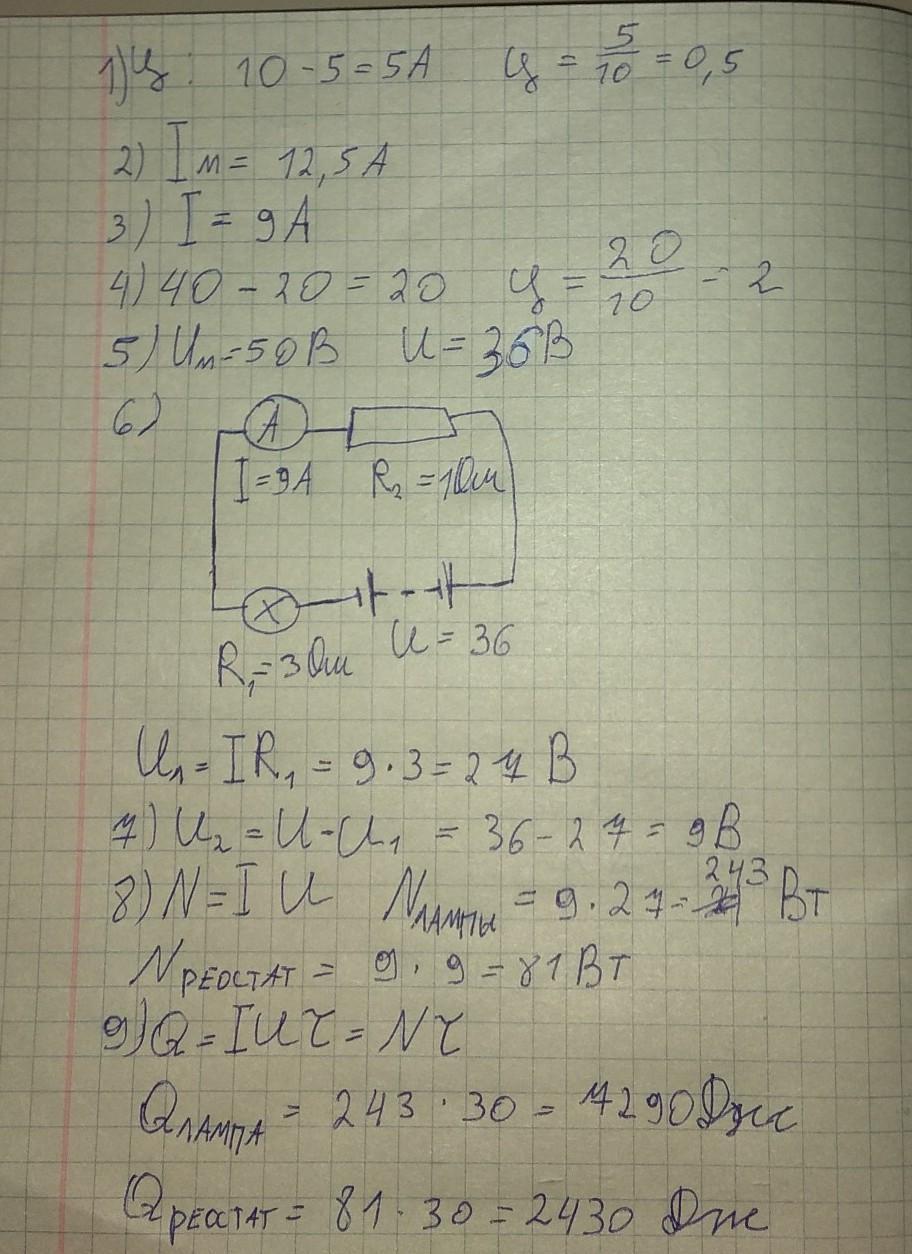 1) Ц: 10 - 5 = 5А Ц = 5/10 = 0,5
2) Iм = 12,5 А
3) I = 9А
4) 40 - 20 = 20 Ц = 20/10 = 2
5) Uм = 50В U = 36В
6)
A
I = 9А R₂ = 1Ом
R₁ = 3Ом U = 36
U₁ = IR₁ = 9 · 3 = 27 В
7) U₂ = U - U₁ = 36 - 27 = 9В
8) N = I U Nлампы = 9 · 27 = 243 Вт
Nреостат = 9 · 9 = 81 Вт
9) Q = IUτ = Nτ
Qлампа = 243 · 30 = 7290 Дж
Qреостат = 81 · 30 = 2430 Дж